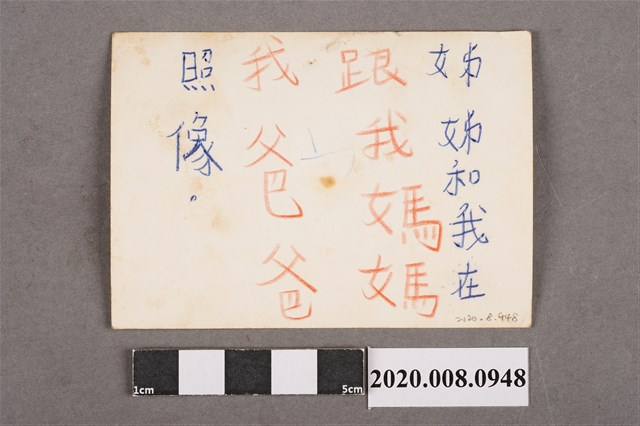 姊姊和我在
跟我媽媽
我爸爸
照像。
2020.8.948
1cm
5cm
2020.008.0948